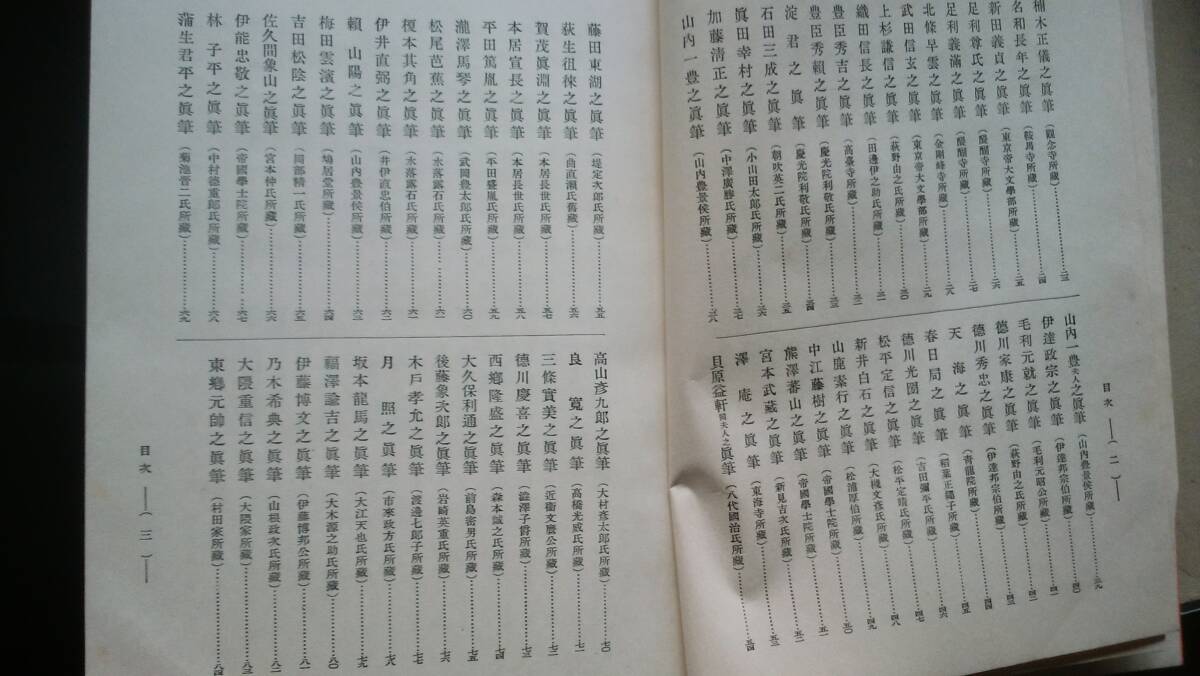 楠木正儀之眞筆（觀念寺所藏）…………二三
名和長年之眞筆（鞍馬寺所藏）…………二四
新田義貞之眞筆（東京帝大文學部所藏）…………二五
足利尊氏之眞筆（醍醐寺所藏）…………二六
足利義滿之眞筆（醍醐寺所藏）…………二七
北條早雲之眞筆（金剛峰寺所藏）…………二八
武田信玄之眞筆（東京帝大文學部所藏）…………二九
上杉謙信之眞筆（萩野由之氏所藏）…………三〇
織田信長之眞筆（田邊伊之助氏所藏）…………三一
豊臣秀吉之眞筆（高臺寺所藏）…………三二
豊臣秀賴之眞筆（慶光院利敬氏所藏）
淀君之眞筆（慶光院利敬氏所藏）…………三四
石田三成之眞筆（朝吹英二氏所藏）…………三五
眞田幸村之眞筆（小山田太郎氏所藏）…………三六
加藤淸正之眞筆（中澤廣勝氏所藏）…………三七
山内一豊之眞筆（山内豊景侯所藏）…………三八
山内一豊夫人之眞筆（山内豊景侯所藏）…………三九
伊達政宗之眞筆（伊達邦宗伯所藏）…………四〇
毛利元就之眞筆（毛利元昭公所藏）…………四一
德川家康之眞筆（萩野由之氏所藏）…………四二
德川秀忠之眞筆（伊達邦宗伯所藏）…………四三
天海之眞筆（靑龍院所藏）…………四四
春日局之眞筆（稻葉正繩子所藏）…………四五
德川光圀之眞筆（吉田彌平氏所藏）…………四六
松平定信之眞筆（松平定晴氏所藏）…………四八
新井白石之眞筆（大槻文彥氏所藏）…………四九
山鹿素行之眞筆（松浦厚伯所藏）…………五〇
中江藤樹之眞筆（帝國學士院所藏）…………五一
熊澤蕃山之眞筆（帝國學士院所藏）…………五二
宮本武藏之眞筆（新見吉次氏所藏）
澤庵之眞筆（東海寺所藏）
貝原益軒同夫人之眞筆（八代國治氏所藏）…………五四
目次――（二）――
藤田東湖之眞筆（堤定次郎氏所藏）…………五五
荻生徂徠之眞筆（曲直瀨氏舊藏）…………五六
賀茂眞淵之眞筆（本居長世氏所藏）…………五七
本居宣長之眞筆（本居長世氏所藏）…………五八
平田篤胤之眞筆（平田盛胤氏所藏）…………五九
瀧澤馬琴之眞筆（武岡豊太郎氏所藏）…………六〇
松尾芭蕉之眞筆（水落露石氏所藏）…………六一
榎本其角之眞筆（水落露石氏所藏）…………六一
伊井直弼之眞筆（井伊直忠伯所藏）…………六二
賴山陽之眞筆（山内豊景侯所藏）…………六三
梅田雲濱之眞筆（鳩居堂所藏）…………六四
吉田松陰之眞筆（岡部精一氏所藏）…………六五
佐久間象山之眞筆（宮本仲氏所藏）…………六六
伊能忠敬之眞筆（帝國學士院所藏）…………六七
林子平之眞筆（中村德重郎氏所藏）…………六八
蒲生君平之眞筆（菊池晉二氏所藏）…………六九
高山彥九郎之眞筆（大村彥太郎氏所藏）…………七〇
良寬之眞筆（高橋光威氏所藏）…………七一
三條實美之眞筆（近衞文麿公所藏）…………七二
德川慶喜之眞筆（澁澤子爵所藏）…………七三
西鄕隆盛之眞筆（森本誠之氏所藏）…………七四
大久保利通之眞筆（前島密男氏所藏）…………七五
後藤象次郎之眞筆（岩崎英重氏所藏）…………七六
木戶孝允之眞筆（渡邊七郎子所藏）…………七七
月照之眞筆（市來政方氏所藏）…………七八
坂本龍馬之眞筆（大江天也氏所藏）…………七九
福澤諭吉之眞筆（大木源之助氏所藏）…………八〇
伊藤博文之眞筆（伊藤博邦公所藏）…………八一
乃木希典之眞筆（山根政次氏所藏）…………八二
大隈重信之眞筆（大隈家所藏）…………八三
東鄕元帥之眞筆（村田家所藏）…………八四
目次――（三）――